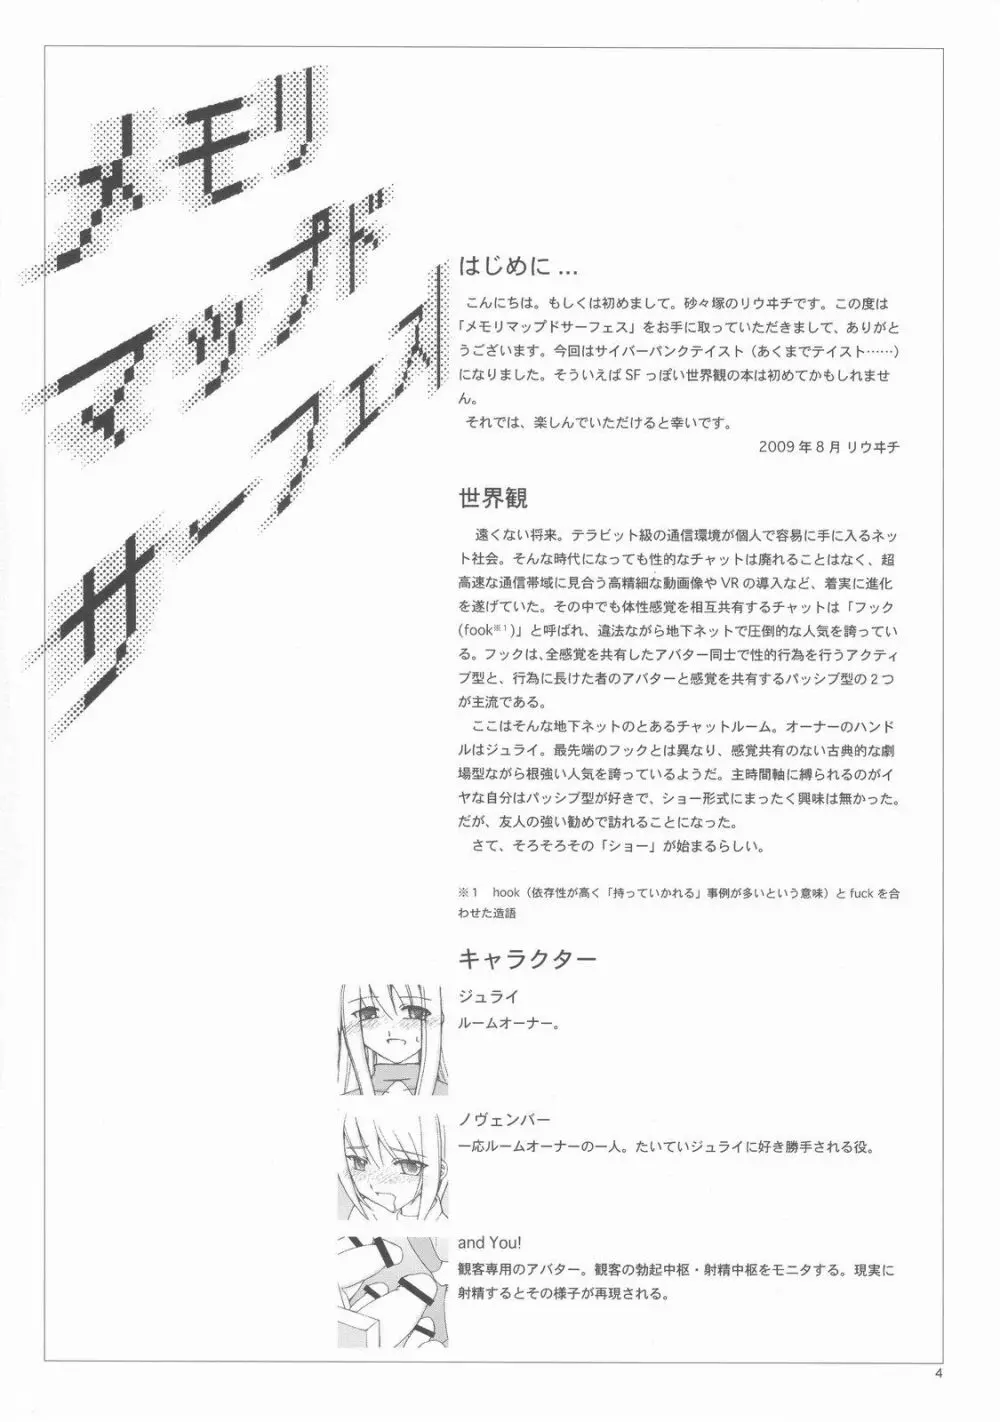 メモリ
マップド
サーフェス
はじめに ...
こんにちは。もしくは初めまして。砂々塚のリウヰチです。この度は
「メモリマップドサーフェス」をお手に取っていただきまして、ありがと
うございます。今回はサイバーパンクテイスト（あくまでテイスト……）
になりました。そういえば SF っぽい世界観の本は初めてかもしれませ
ん。
それでは、楽しんでいただけると幸いです。
2009 年 8 月 リウヰチ
世界観
遠くない将来。テラビット級の通信環境が個人で容易に手に入るネッ
ト社会。そんな時代になっても性的なチャットは廃れることはなく、超
高速な通信帯域に見合う高精細な動画像や VR の導入など、着実に進化
を遂げていた。その中でも体性感覚を相互共有するチャットは「フック
(fook※1)」と呼ばれ、違法ながら地下ネットで圧倒的な人気を誇ってい
る。フックは、全感覚を共有したアバター同士で性的行為を行うアクティ
ブ型と、行為に長けた者のアバターと感覚を共有するパッシブ型の２つ
が主流である。
ここはそんな地下ネットのとあるチャットルーム。オーナーのハンド
ルはジュライ。最先端のフックとは異なり、感覚共有のない古典的な劇
場型ながら根強い人気を誇っているようだ。主時間軸に縛られるのがイ
ヤな自分はパッシブ型が好きで、ショー形式にまったく興味は無かった。
だが、友人の強い勧めで訪れることになった。
さて、そろそろその「ショー」が始まるらしい。
※１ hook（依存性が高く「持っていかれる」事例が多いという意味）と fuck を合
わせた造語
キャラクター
ジュライ
ルームオーナー。
ノヴェンバー
一応ルームオーナーの一人。たいていジュライに好き勝手される役。
and You!
観客専用のアバター。観客の勃起中枢・射精中枢をモニタする。現実に
射精するとその様子が再現される。
4